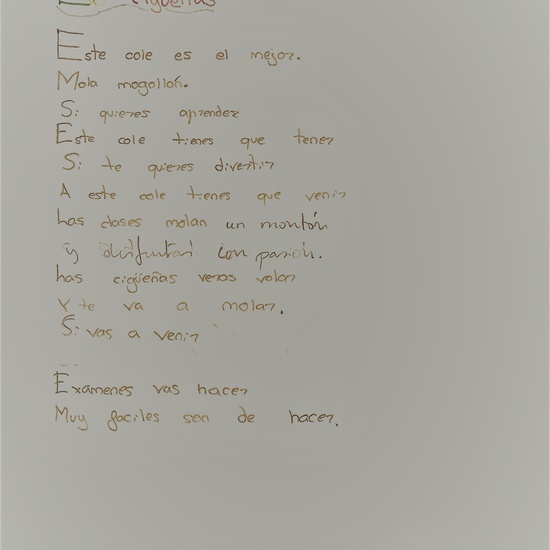 cigüeñas
Este cole es el mejor.
Mola mogollón.
Si quieres aprender
Este cole tienes que tener
Si te quieres divertir
A este cole tienes que venir
Las clases molan un montón
y disfrutas con pasión.
Las cigüeñas veras volar
Y te va a molar.
Si vas a venir
Examenes vas hacer
Muy faciles son de hacer.